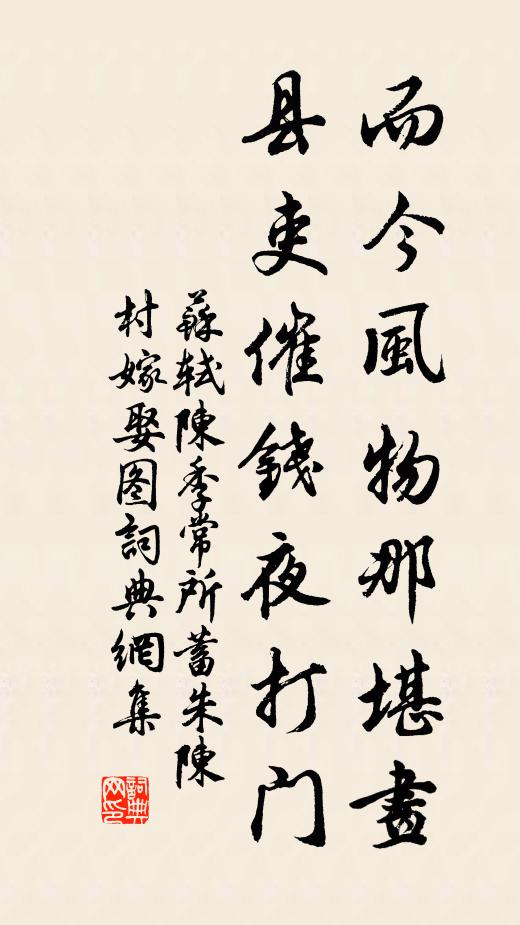 而今風物那堪畫
县吏催錢夜打門
蘇軾陳季常所蓄朱陳
村嫁娶图詞典網集
詞典网印